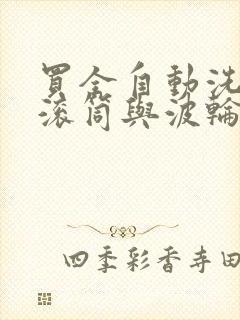 買全自動洗
滾筒與波輪
四季彩香寺田